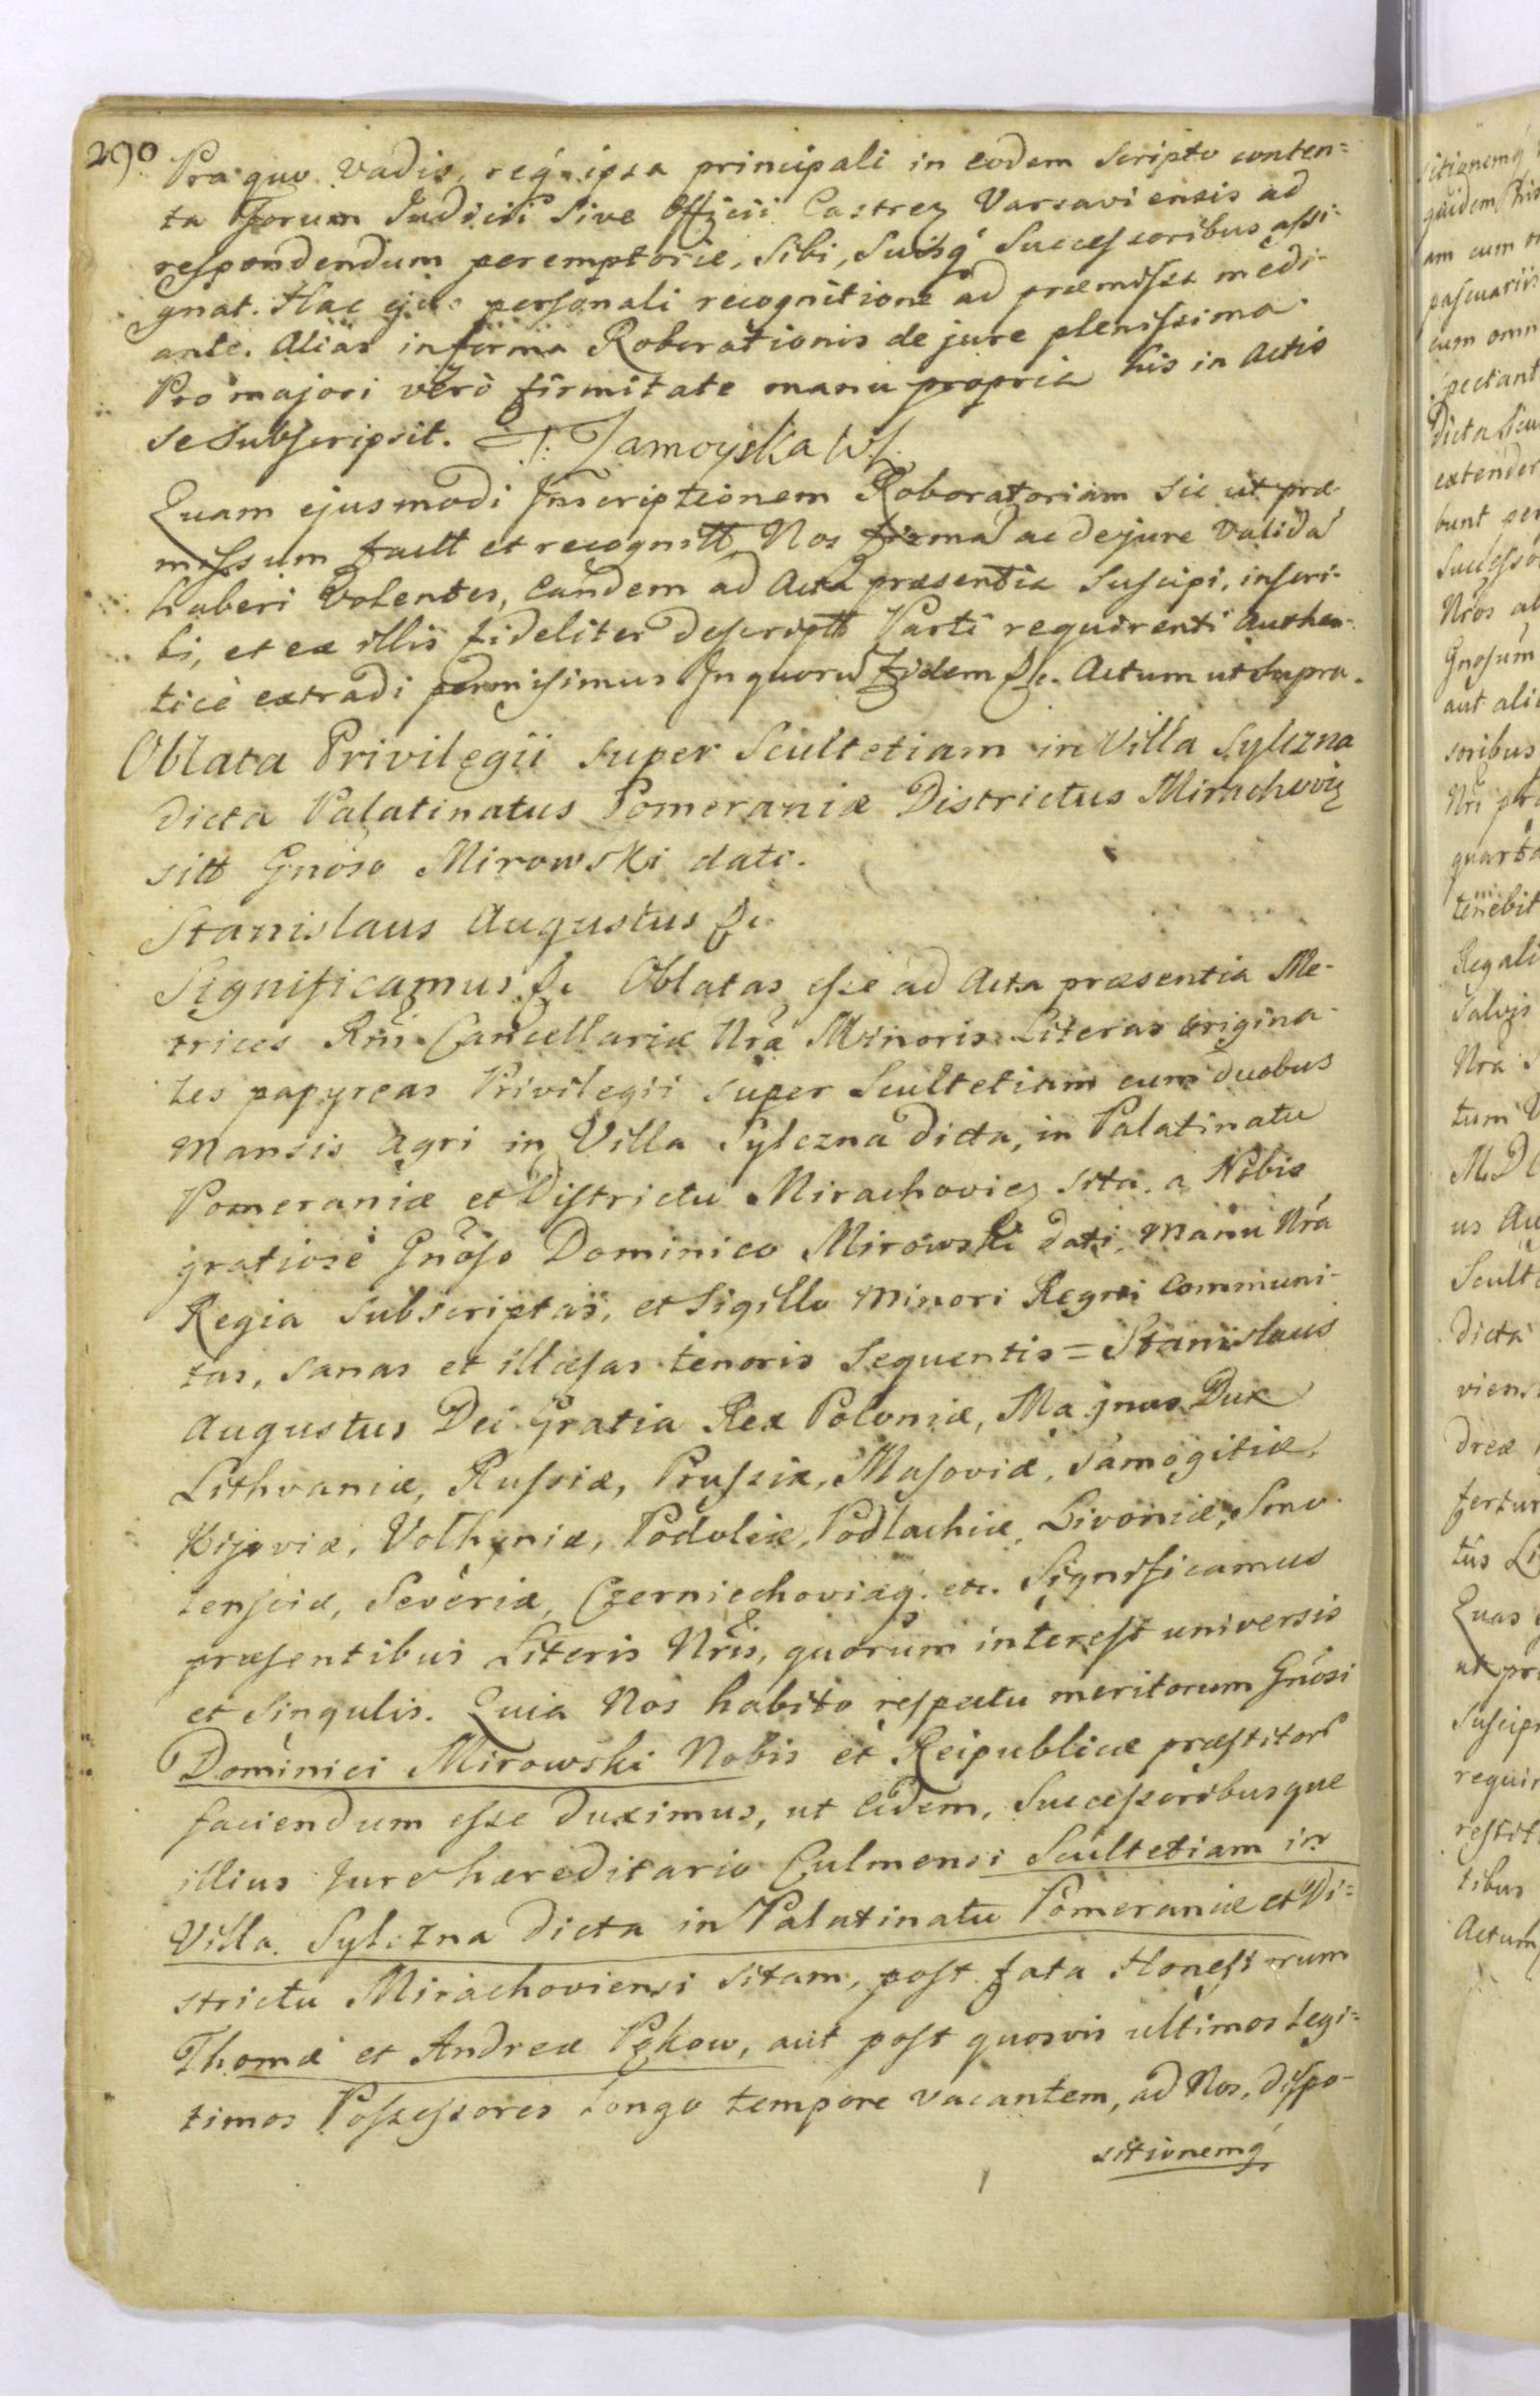 290
Pro quo vadis, reqz ipsa principali in eodem Scripto conten=
ta Forum Judicii Sive Officii Castrez Varsaviensis ad
respondendum peremptorie, Sibi, Suisq́ Successoribus assi-
gnat. Hac ejus personali recognitione ad præmissa medi-
ante. Alias in forma Roborationis de jure plenissima.
Pro majori verò firmitate manu propria his in Actis
se Subscripsit. Zamoyska
Quam ejusmodi Inscriptionem Roboratoriam Sic ut præ-
missum factt et recognitt Nos firmā ac de jure validā
haberi Volentes, Eandem ad Acta præsentia Suscipi, inscri-
bi, et ex illis fideliter descriptt Parti requirenti Authen-
ticè extradi permisimus In quorū Fidem &c. Actum ut Supra.
Oblata Privilegii super Scultetiam in Villa Sylczna
dicta Palatinatus Pomeraniæ Districtus Mirachoviz
sitt Gnoso Mirowski dati.
Stanislaus Augustus &c
Significamus &c Oblatas esse ad Acta præsentia Me-
trices Rni Cancellariæ Nrā Minoris Literas origina-
les papyreas Privilegii super Scultetiam cum duobus
Mansis Agri in Villa Sylczna dicta, in Palatinatu
Pomeraniæ et Districtu Mirachovicz sita. a Nobis
gratiosè Gnoso Dominico Mirowski dati, Manu Nrá
Regia subscriptas, et Sigillo Minori Regni Communi-
tas, sanas et illæsas tenoris Sequentis = Stanislaus
Augustus Dei Gratia Rex Poloniæ, Magnus Dux
Lithvaniæ, Russiæ, Prussiæ, Masoviæ, Samogitiæ,
Kijoviæ, Volhyniæ, Podoliæ, Podlachiæ, Livoniæ, Smo-
lensciæ, Severiæ, Czerniechoviæq́. etc. Significamus
præsentibus Literis Nris, quorum interest universis
et Singulis. Quia Nos habito respectu meritorum Gnosi
Dominici Mirowski Nobis et Reipublicæ præstitorū
faciendum esse duximus, ut Eidem, Successoribusque
illius Jure hæreditario Culmensi Scultetiam in
Villa Sylczna dicta in Palatinatu Pomeraniæ et Di=
strictu Mirachoviensi Sitam, post fata Honestorum
Thomæ et Andreæ Pękow, aut post quosvis ultimos Legi=
timos Possessores longo tempore vacantem, ad Nos, dispo-
sitionemq́